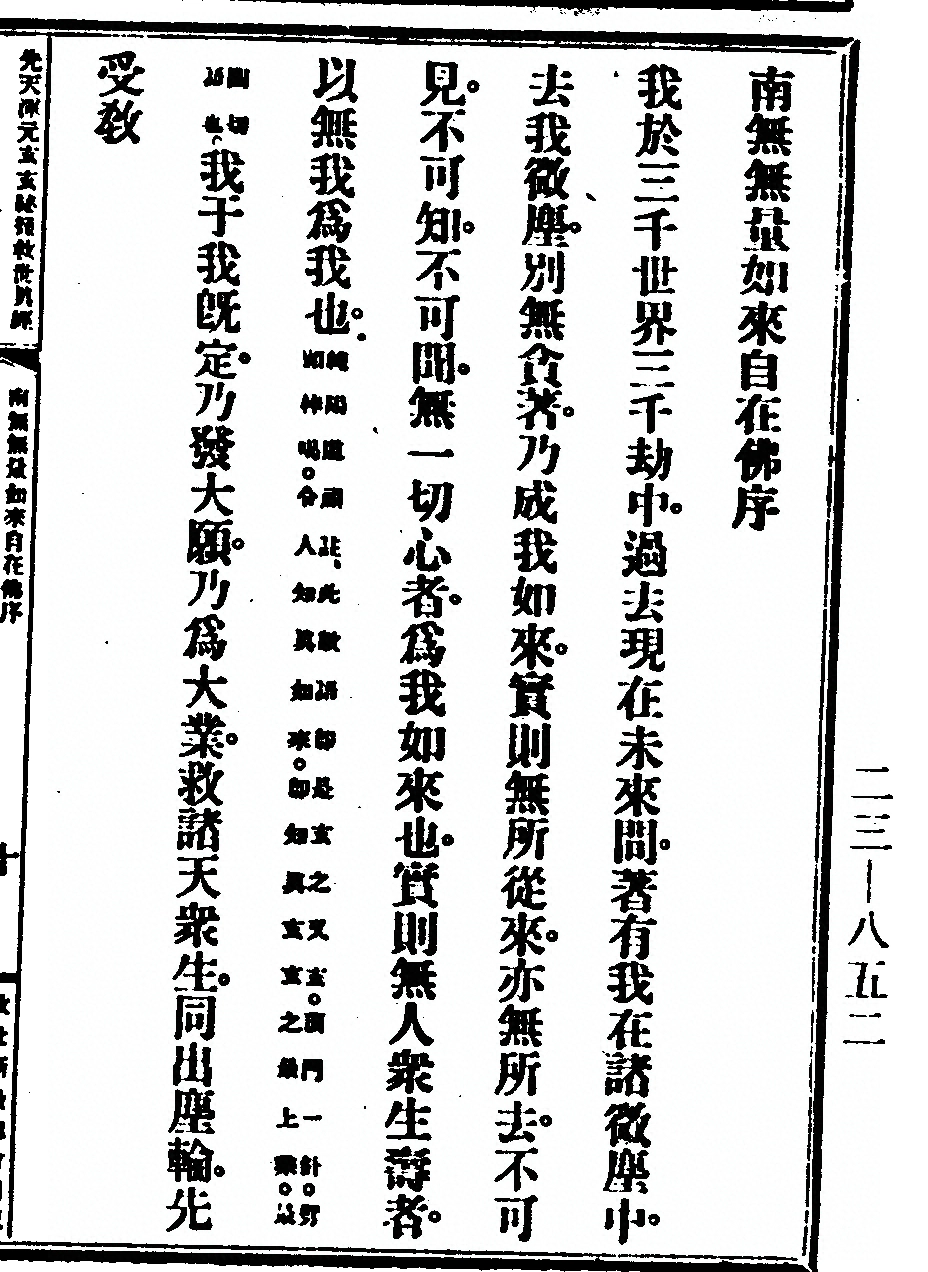 南無無量如來自在佛序
我於三千世界三千劫中。過去現在未來間。著有我在諸微塵中。
去我微塵。別無貪著。乃成我如來。實則無所從來。亦無所去。不可
見。不可知。不可聞。無一切心者。爲我如來也。實則無人衆生壽者。
以無我爲我也。純陽道祖註、此數語卽是玄之又玄。頂門一針。劈
如棒喝。令人知眞如來。卽知眞玄玄之最上乘。最
切
也、我于我旣定。乃發大願。乃爲大業。救諸天衆生。同出塵輪。先
受敎
先天渾元玄玄祕籙救世眞經
南無無量如來自在佛序
十
二三—八五二